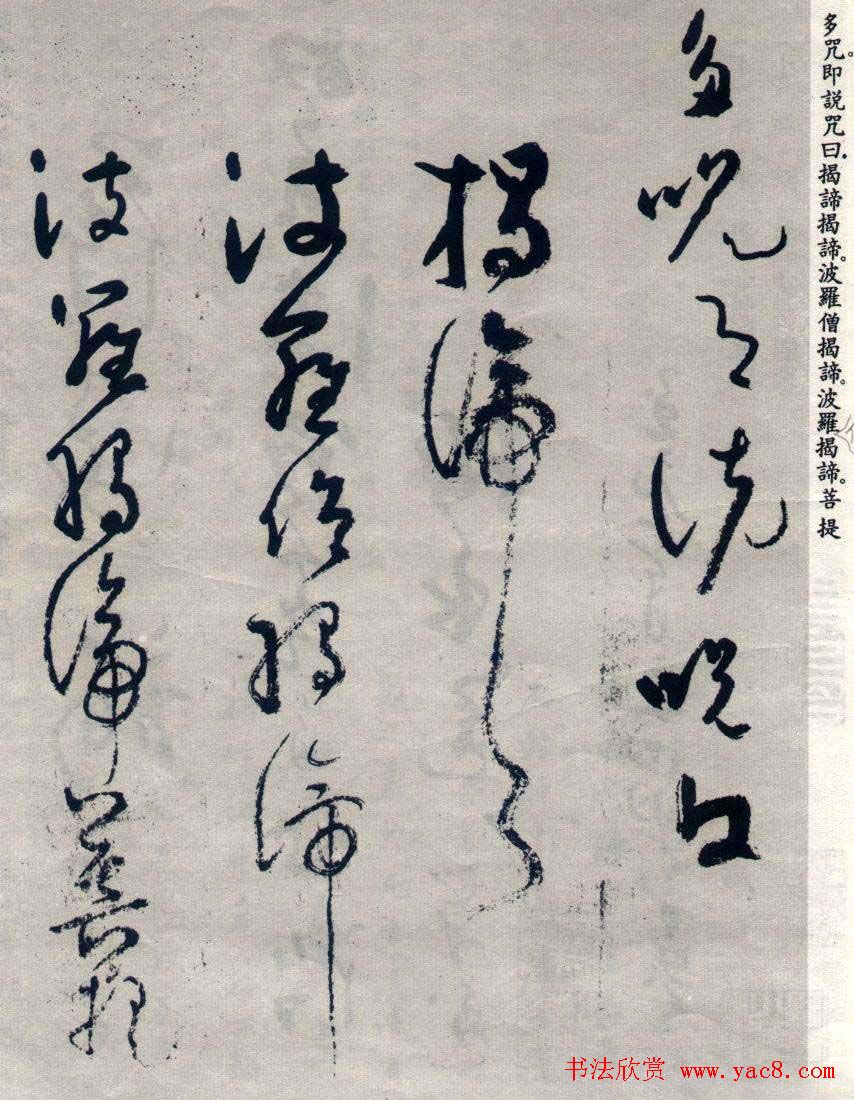 多咒。即說咒曰.揭諦揭諦。波羅僧揭諦。波羅揭諦。菩提
多呪即說呪曰
揭諦〻〻
波羅僧揭諦
波羅揭諦菩提
书法欣赏 www.yac8.com